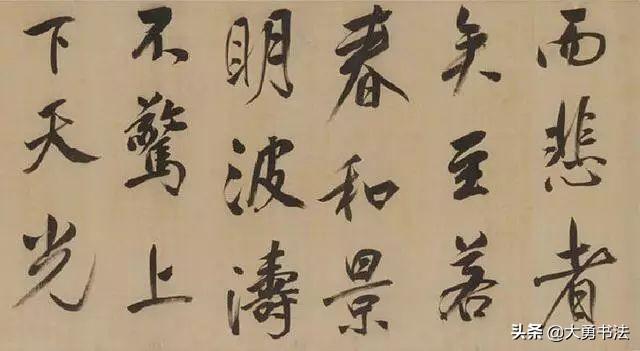 而悲者
矣至若
春和景
明波濤
不驚上
下天光
头条 @大勇书法